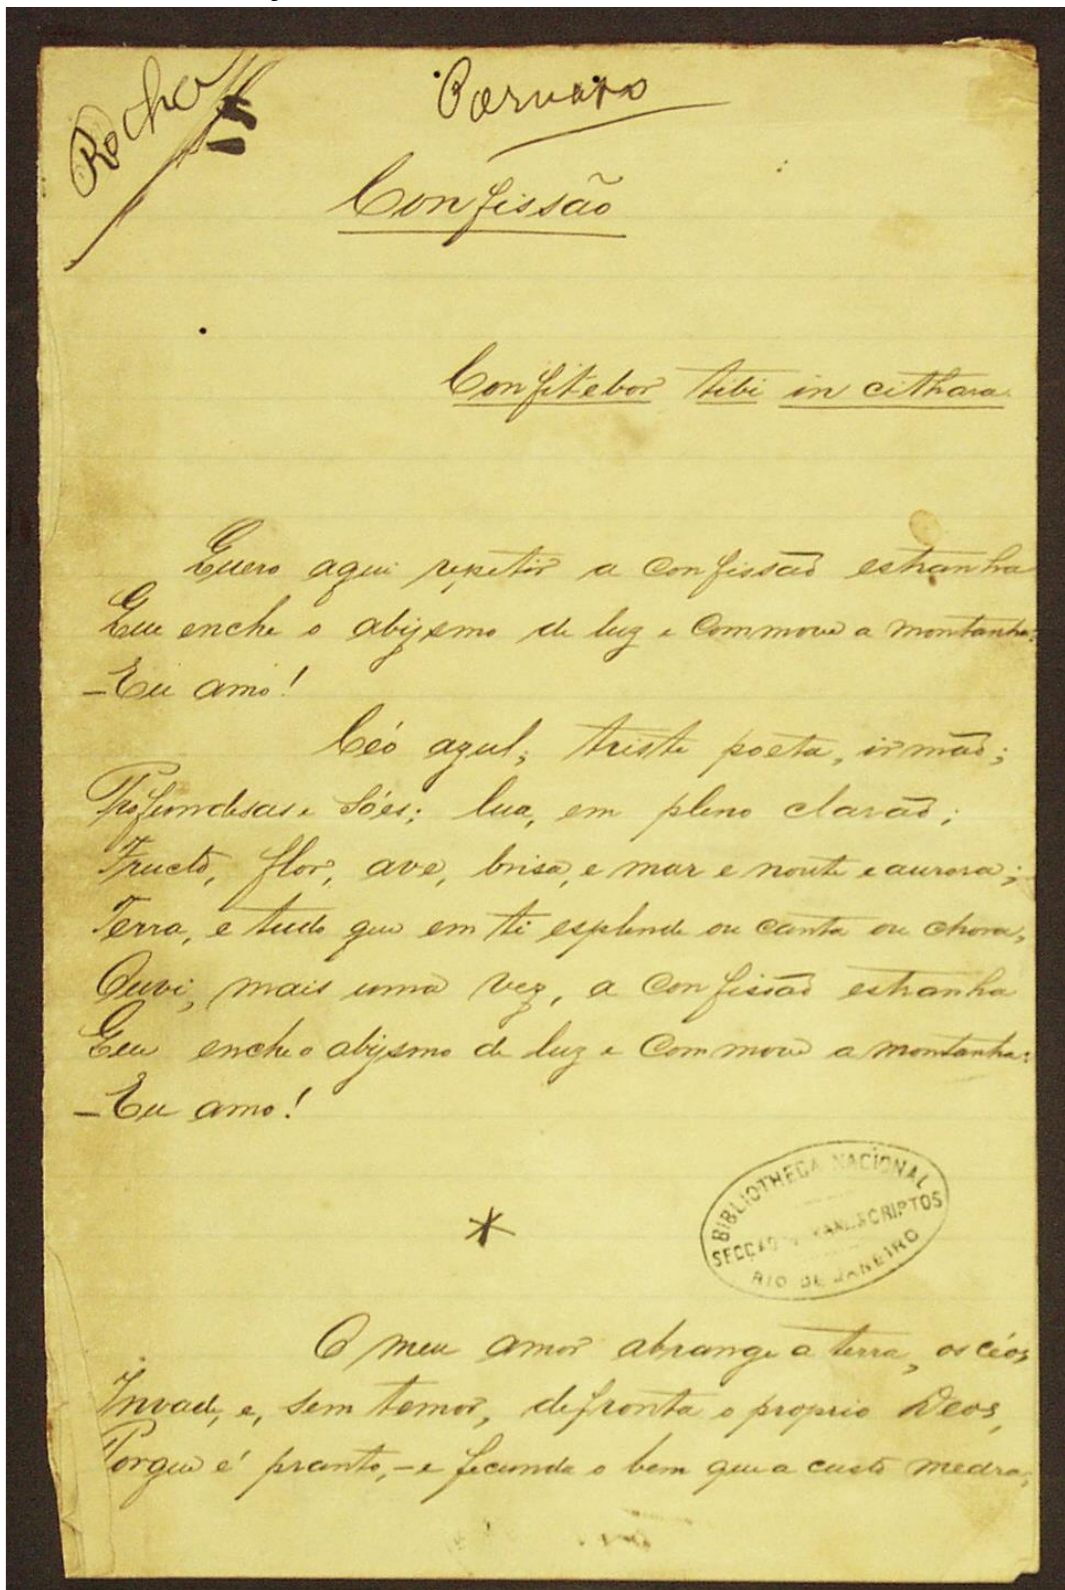 Rocha
Parnaso
Confissão
Confitebor tibi in cithara.
Quero aqui repetir a confissão estranha
Que enche o abysmo de luz e commove a montanha:
—Eu amo!
Céo azul; triste poeta, irmão;
Profundesas e Sóes; lua, em pleno clarão;
Fructo, flor, ave, brisa, e mar e noute e aurora;
Terra, e tudo que em ti esplende ou canta ou chora,
Ouvi, mais uma vez, a confissão estranha
Que enche o abysmo de luz e commove a montanha:
—Eu amo!
*
BIBLIOTHECA NACIONAL
SECÇÃO MANUSCRIPTOS
RIO DE JANEIRO
O meu amor abrange a terra, os céos,
Invade, e, sem temor, defronta o proprio Deos,
Porque é pranto,—e fecunda o bem que a custo medra;